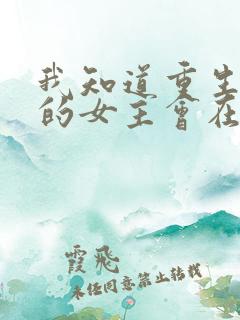 我知道重生
的女主会在
霞飛
未经同意禁止转载